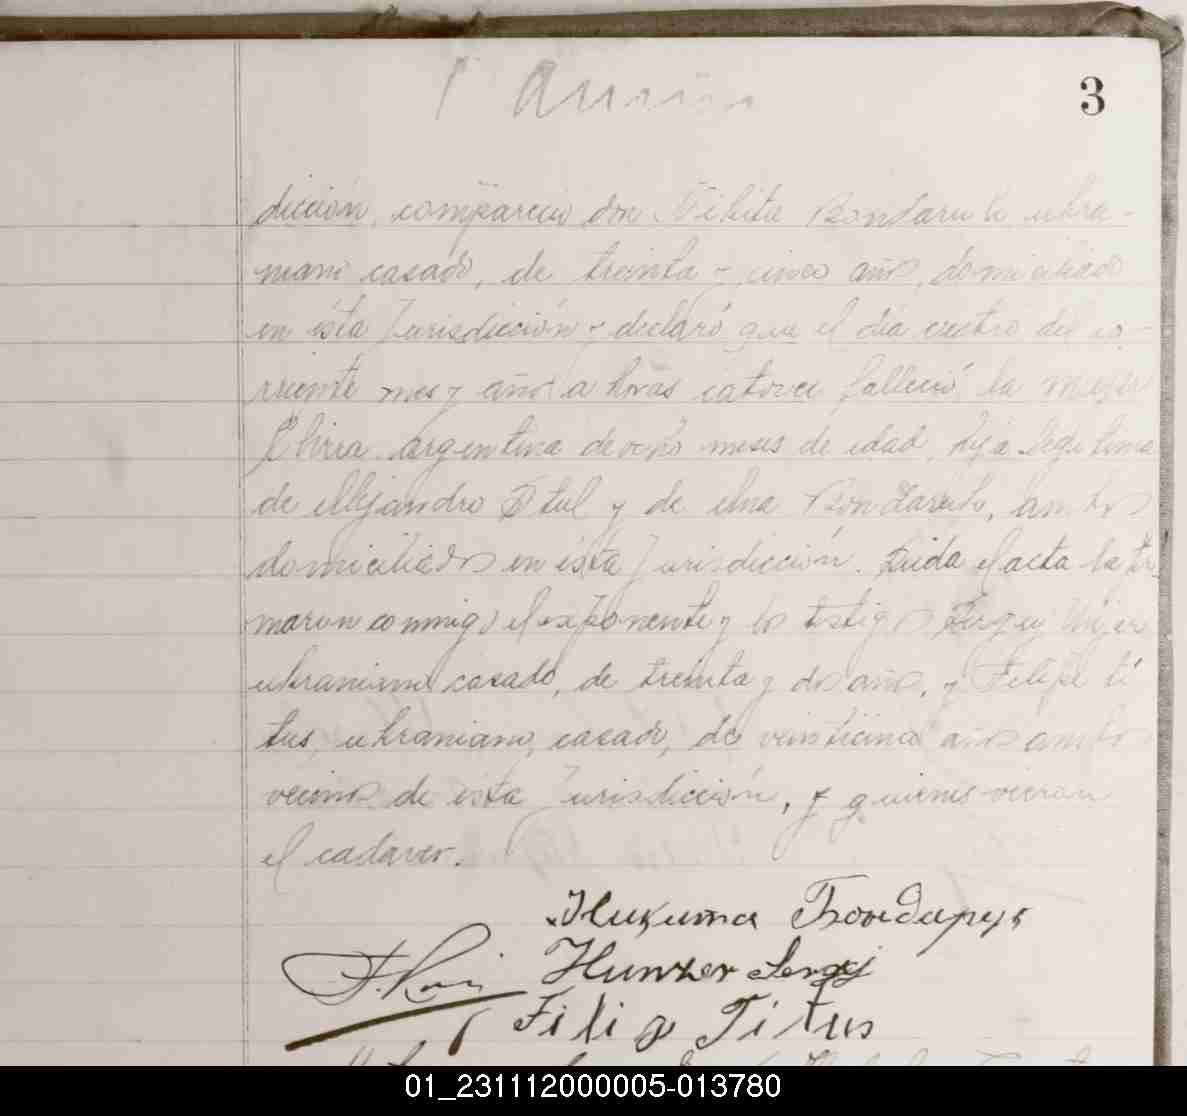 3
dicción, compareció don Nikita Bondaruk ucra-
niano casado, de treinta y cinco años, domiciliado
en ésta Jurisdicción y declaró que el día cuatro del co-
rriente mes y año a horas catorce falleció la mujer
argentina de ocho meses de edad, hija legitima
de Alejandro Stul y de Ana Bondaruk, ambos
domiciliados en ésta Jurisdicción. Leida el acta la fir
maron conmigo el exponente y los testigos Sergey
ukraniano casado, de treinta y dos años, y Felipe Ti
tus, ukraniano, casado, de veinticinco años ambos
vecinos de ésta Jurisdicción, y quienes vieron
el cadaver.
Никита Бондарук
Hunzer Sergj
Filip Titus
01_231112000005-013780